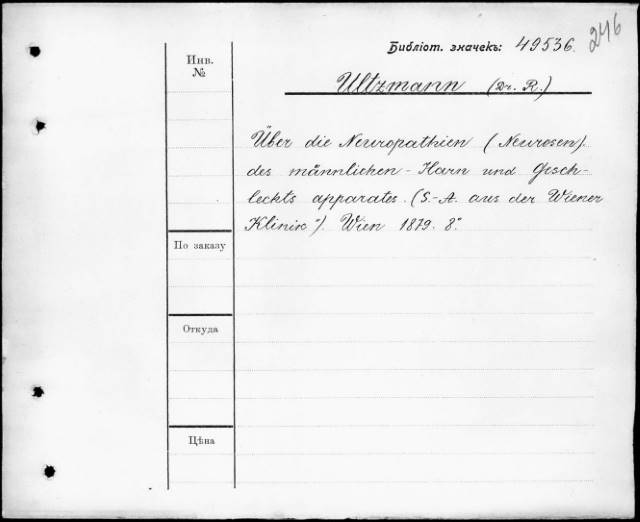 246
Библіот. значекъ: 49536.
Инв.
№
Ultzmann (Dr. R.)
Über die Neuropathien (Neurosen).
des männlichen - Harn und Gesch-
leckts apparates. (S.-A. aus der Wiener
Klinik"). Wien 1879. 8°.
По заказу
Откуда
Цѣна